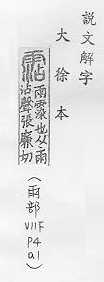 說文解字
大徐本
霑
雨䨙也从雨
沾聲張廉切
（雨部
VIIF
P4
a1）